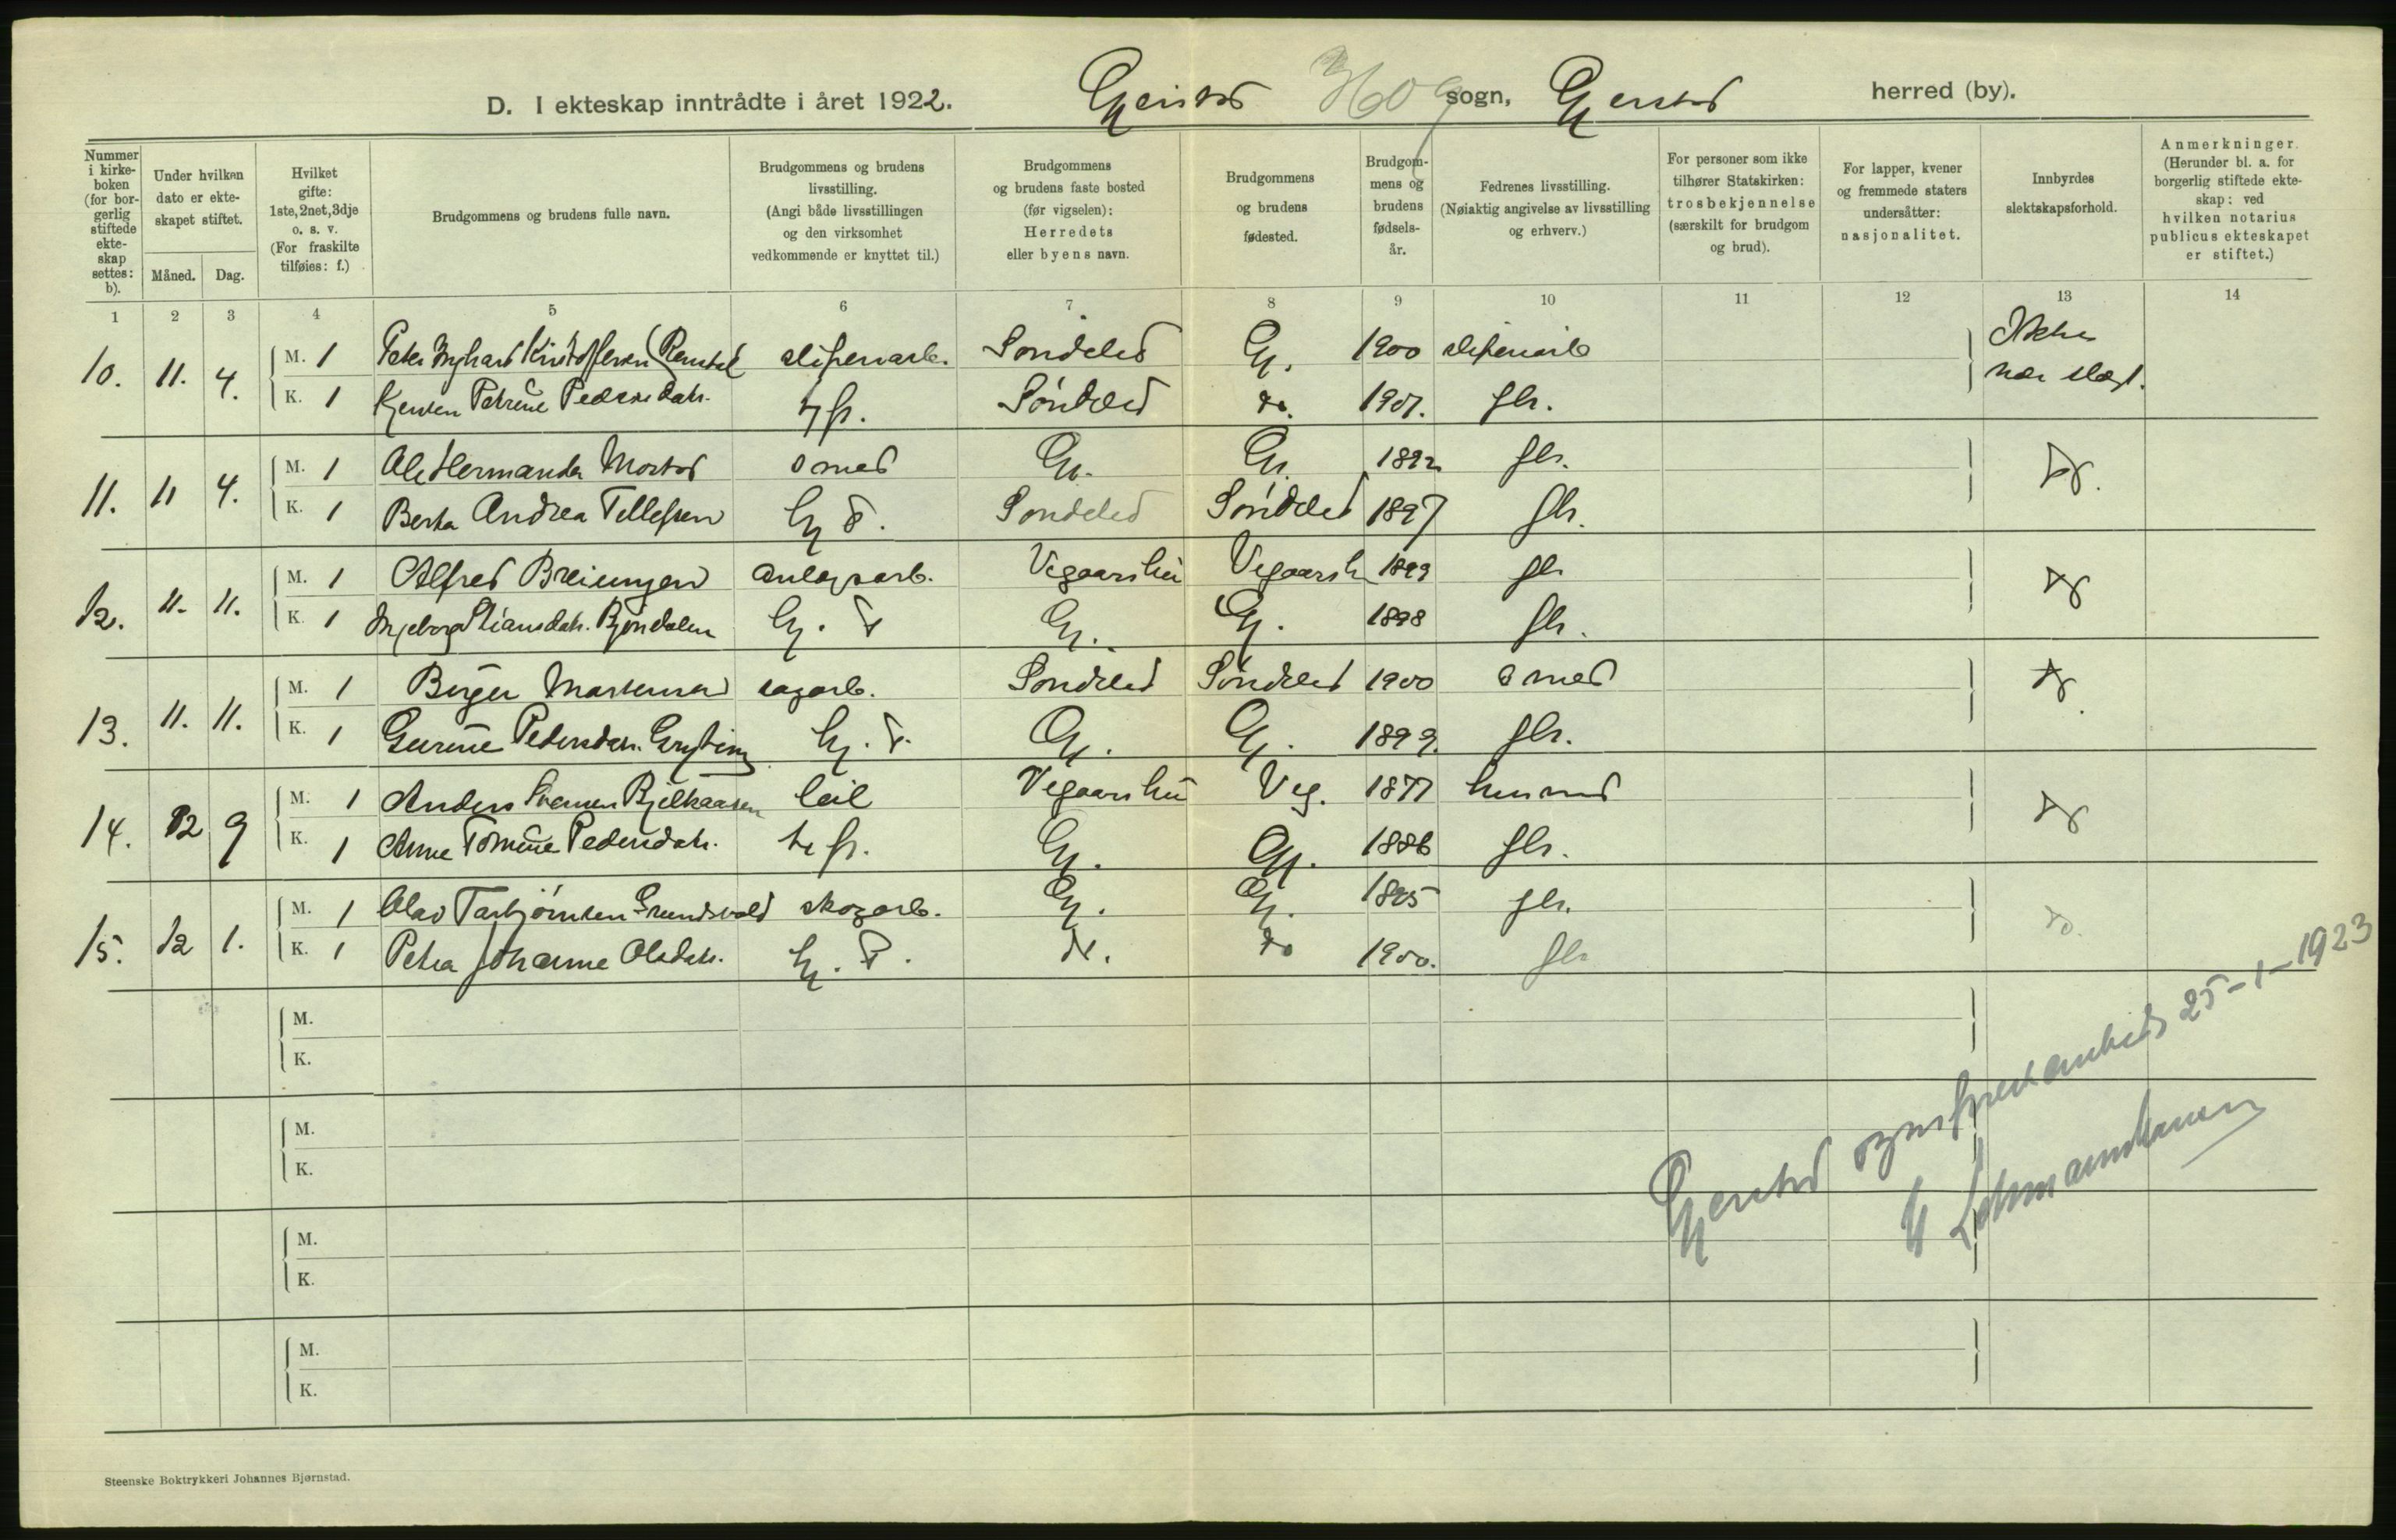 D. I ekteskap inntrådte i året 1922. Gjerstad 3609 sogn, Gjerstad herred (by).
Nummer i kirkeboken (for borgerlig stiftede ekteskap settes: b).
Under hvilken dato er ekteskapet stiftet.
Måned. Dag.
Hvilket gifte: 1ste, 2net, 3dje o. s. v. (For fraskilte tilføies: f.)
Brudgommens og brudens fulle navn.
Brudgommens og brudens livsstilling. (Angi både livsstillingen og den virksomhet vedkommende er knyttet til.)
Brudgommens og brudens faste bosted (før vigselen): Herredets eller byens navn.
Brudgommens og brudens fødested.
Brudgommens og brudens fødselsår.
Fedrenes livsstilling. (Nøiaktig angivelse av livsstilling og erhverv.)
For personer som ikke tilhører Statskirken: trosbekjennelse (særskilt for brudgom og brud).
For lapper, kvener og fremmede staters undersåtter: nasjonalitet.
Innbyrdes slektskapsforhold.
Anmerkninger. (Herunder bl. a. for borgerlig stiftede ekteskap: ved hvilken notarius publicus ekteskapet er stiftet.)
1 2 3 4 5 6 7 8 9 10 11 12 13 14
10. 11. 4. M. 1 Kristoffersen sliperiarb. Søndeled Gj. 1900 sliperiarb Ikke
K. 1 Petrine Pedersdatr. Søndeled do. 1901. gbr. nær slægt.
11. 11 4. M. 1 Ole Hermansen smed Gj. Gj. 1892 gbr. do.
K. 1 Berta Andrea Tellefsen Hj. d. Søndeled Søndeled 1897 gbr.
12. 11. 11. M. 1 Alfred anlegsarb. Vegaarshei Vegaarsh. 1899 gbr do
K. 1 Ingeborg Bjøndalen Hj. d Gj. Gj. 1898 gbr.
13. 11. 11. M. 1 Birger Martensen sagarb. Søndeled Søndeled 1900 smed do.
K. 1 Pedersdatr. Hj. d. Gj. Gj. 1899. gbr.
14. 12 9 M. 1 Anders Vegaarshei Veg. 1877 husmand do
K. 1 Anne Pedersdatr. Gj. Gj. 1886 gbr.
15. 12 1. M. 1 Olav Tarbjørnsen skogarb. Gj. Gj. 1895 gbr. do.
K. 1 Petra Johanne Olsdatr. Hj. d. do. do 1900. gbr
M.
K.
M.
K.
M.
K.
M.
K.
Gjerstad sogneprestembede 25-1-1923
Steenske Boktrykkeri Johannes Bjørnstad.